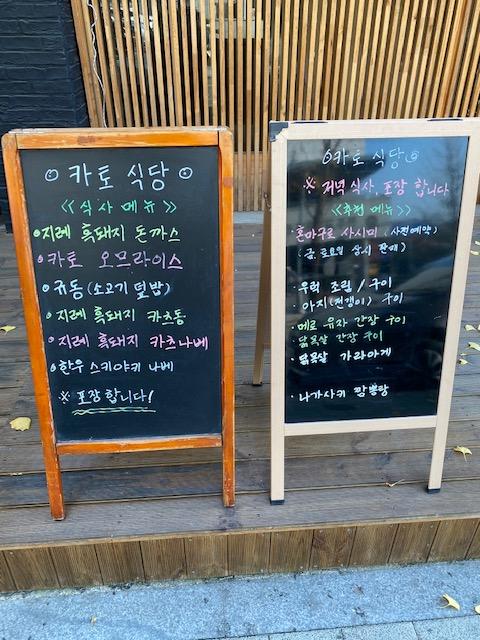 카토 식당
<<식사 메뉴>>
지례 흑돼지 돈까스
카토 오므라이스
규동(소고기 덮밥)
지례 흑돼지 카츠동
지례 흑돼지 카츠나베
한우 스키야키 나베
※ 포장합니다!
카토 식당
※ 저녁 식사, 포장 합니다
<<추천 메뉴>>
·혼마구로 사시미 (사전예약)
(금, 토요일 상시 판매)
·우럭 조림 / 구이
·아지(전갱이) 구이
·메로 유자 간장 구이
·닭목살 간장 구이
·닭목살 가라아게
·나가사키 짬뽕탕